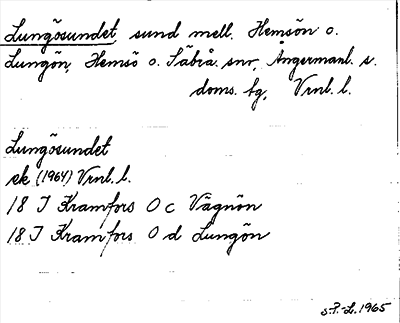 Lungösundet, sund mell. Hemsön o.
Lungön, Hemsö o. Säbrå snr, Ångermanl. s.
doms. hg, Vrnl. l.
Lungösundet
ek (1964) Vrnl. l.
18 I Kramfors O c Vägnön
18 I Kramfors O d Lungön
S.P.-L. 1965